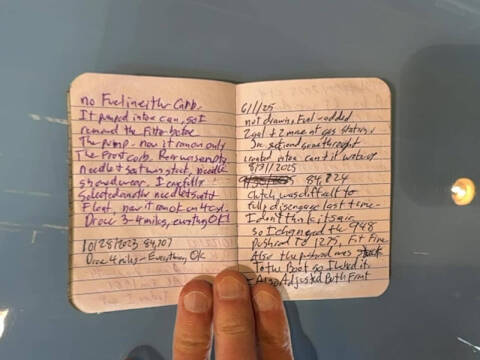 no Fuel in either Carb.
It pumped into a can, so I
removed the Filter before
The pump. now it ran on only
The Front carb. Rear was empty.
needle & seat was stuck, needle
showed wear. I carefully
Selected another needle & seat
Float, now it ran ok on test.
Drove 3-4 miles, everything OK!
10/28/2023 84,707
Drove 4 miles - Everything OK
6/1/25
not drawing Fuel - added
2 gal + 2 more at gas station.
3 sec and
into can
8/31/2025
84,824
Clutch was difficult to
fully disengage last time -
I don't think it's air,
so I changed the 948
Pushrod to 1275, Fit Fine.
Also the pushrod was
To the Boot so I lubed it.
I Also Adjusted Both Front